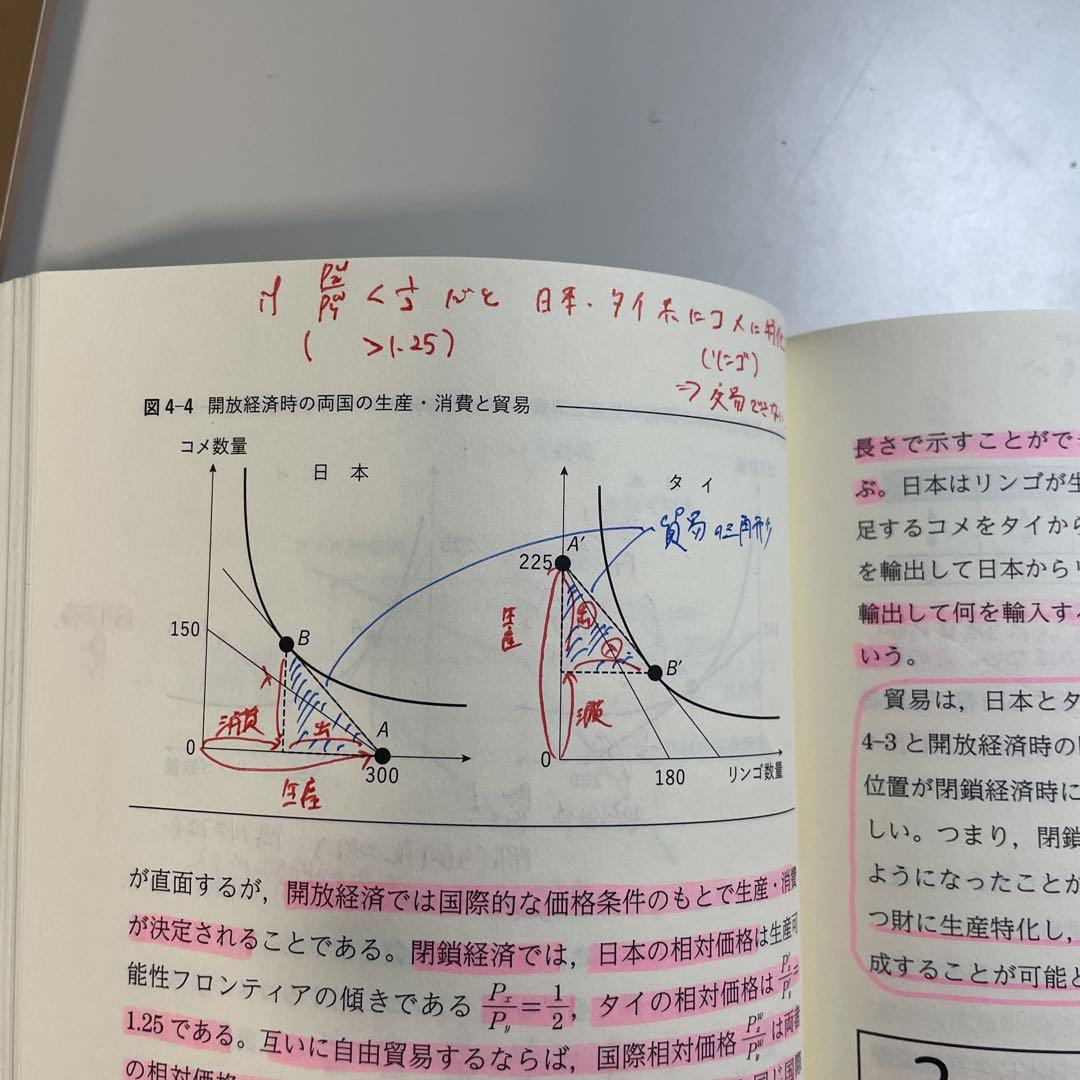 if Pxw/Pyw < 1/2 だと 日本・タイ共にコメに特化
( >1.25)
(リンゴ)
⇒ 交易できない
図4-4 開放経済時の両国の生産・消費と貿易
コメ数量
日 本
タ イ
貿易の三角形
A′
225
生産
150
B
出
入
B′
消費
入
消費
出
A
0
300
生産
0
180
リンゴ数量
が直面するが，開放経済では国際的な価格条件のもとで生産・消費
が決定されることである。閉鎖経済では，日本の相対価格は生産可
能性フロンティアの傾きである Px/Py＝1/2，タイの相対価格は P′x/P′y＝
1.25である。互いに自由貿易するならば，国際相対価格 Pxw/Pyw は両者
の相対価格
同じ国際
長さで示すことがで
ぶ。日本はリンゴが生
足するコメをタイから
を輸出して日本から
輸出して何を輸入す
いう。
貿易は，日本とタ
4-3と開放経済時の
位置が閉鎖経済時に
しい。つまり，閉鎖
ようになったことが
つ財に生産特化し，
成することが可能と